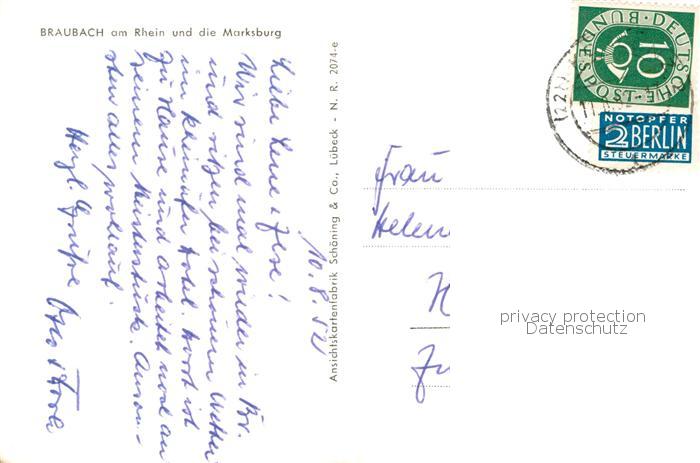 BRAUBACH am Rhein und die Marksburg
10.8.52
Liebe Lene + Ilse!
Wir sind mal wieder in Br.
und sitzen bei schönem Wetter
im Rheinufer Hotel. Horst ist
zu Hause und arbeitet noch an
seinem Meisterstück. Anson-
sten alles wohlauf.
Herzl. Grüße
Ansichtskartenfabrik Schöning & Co., Lübeck - N. R. 2074-e
DEUTSCHE BUNDESPOST
10
NOTOPFER
2 BERLIN
STEUERMARKE
(22
Frau
Helen
privacy protection
Datenschutz